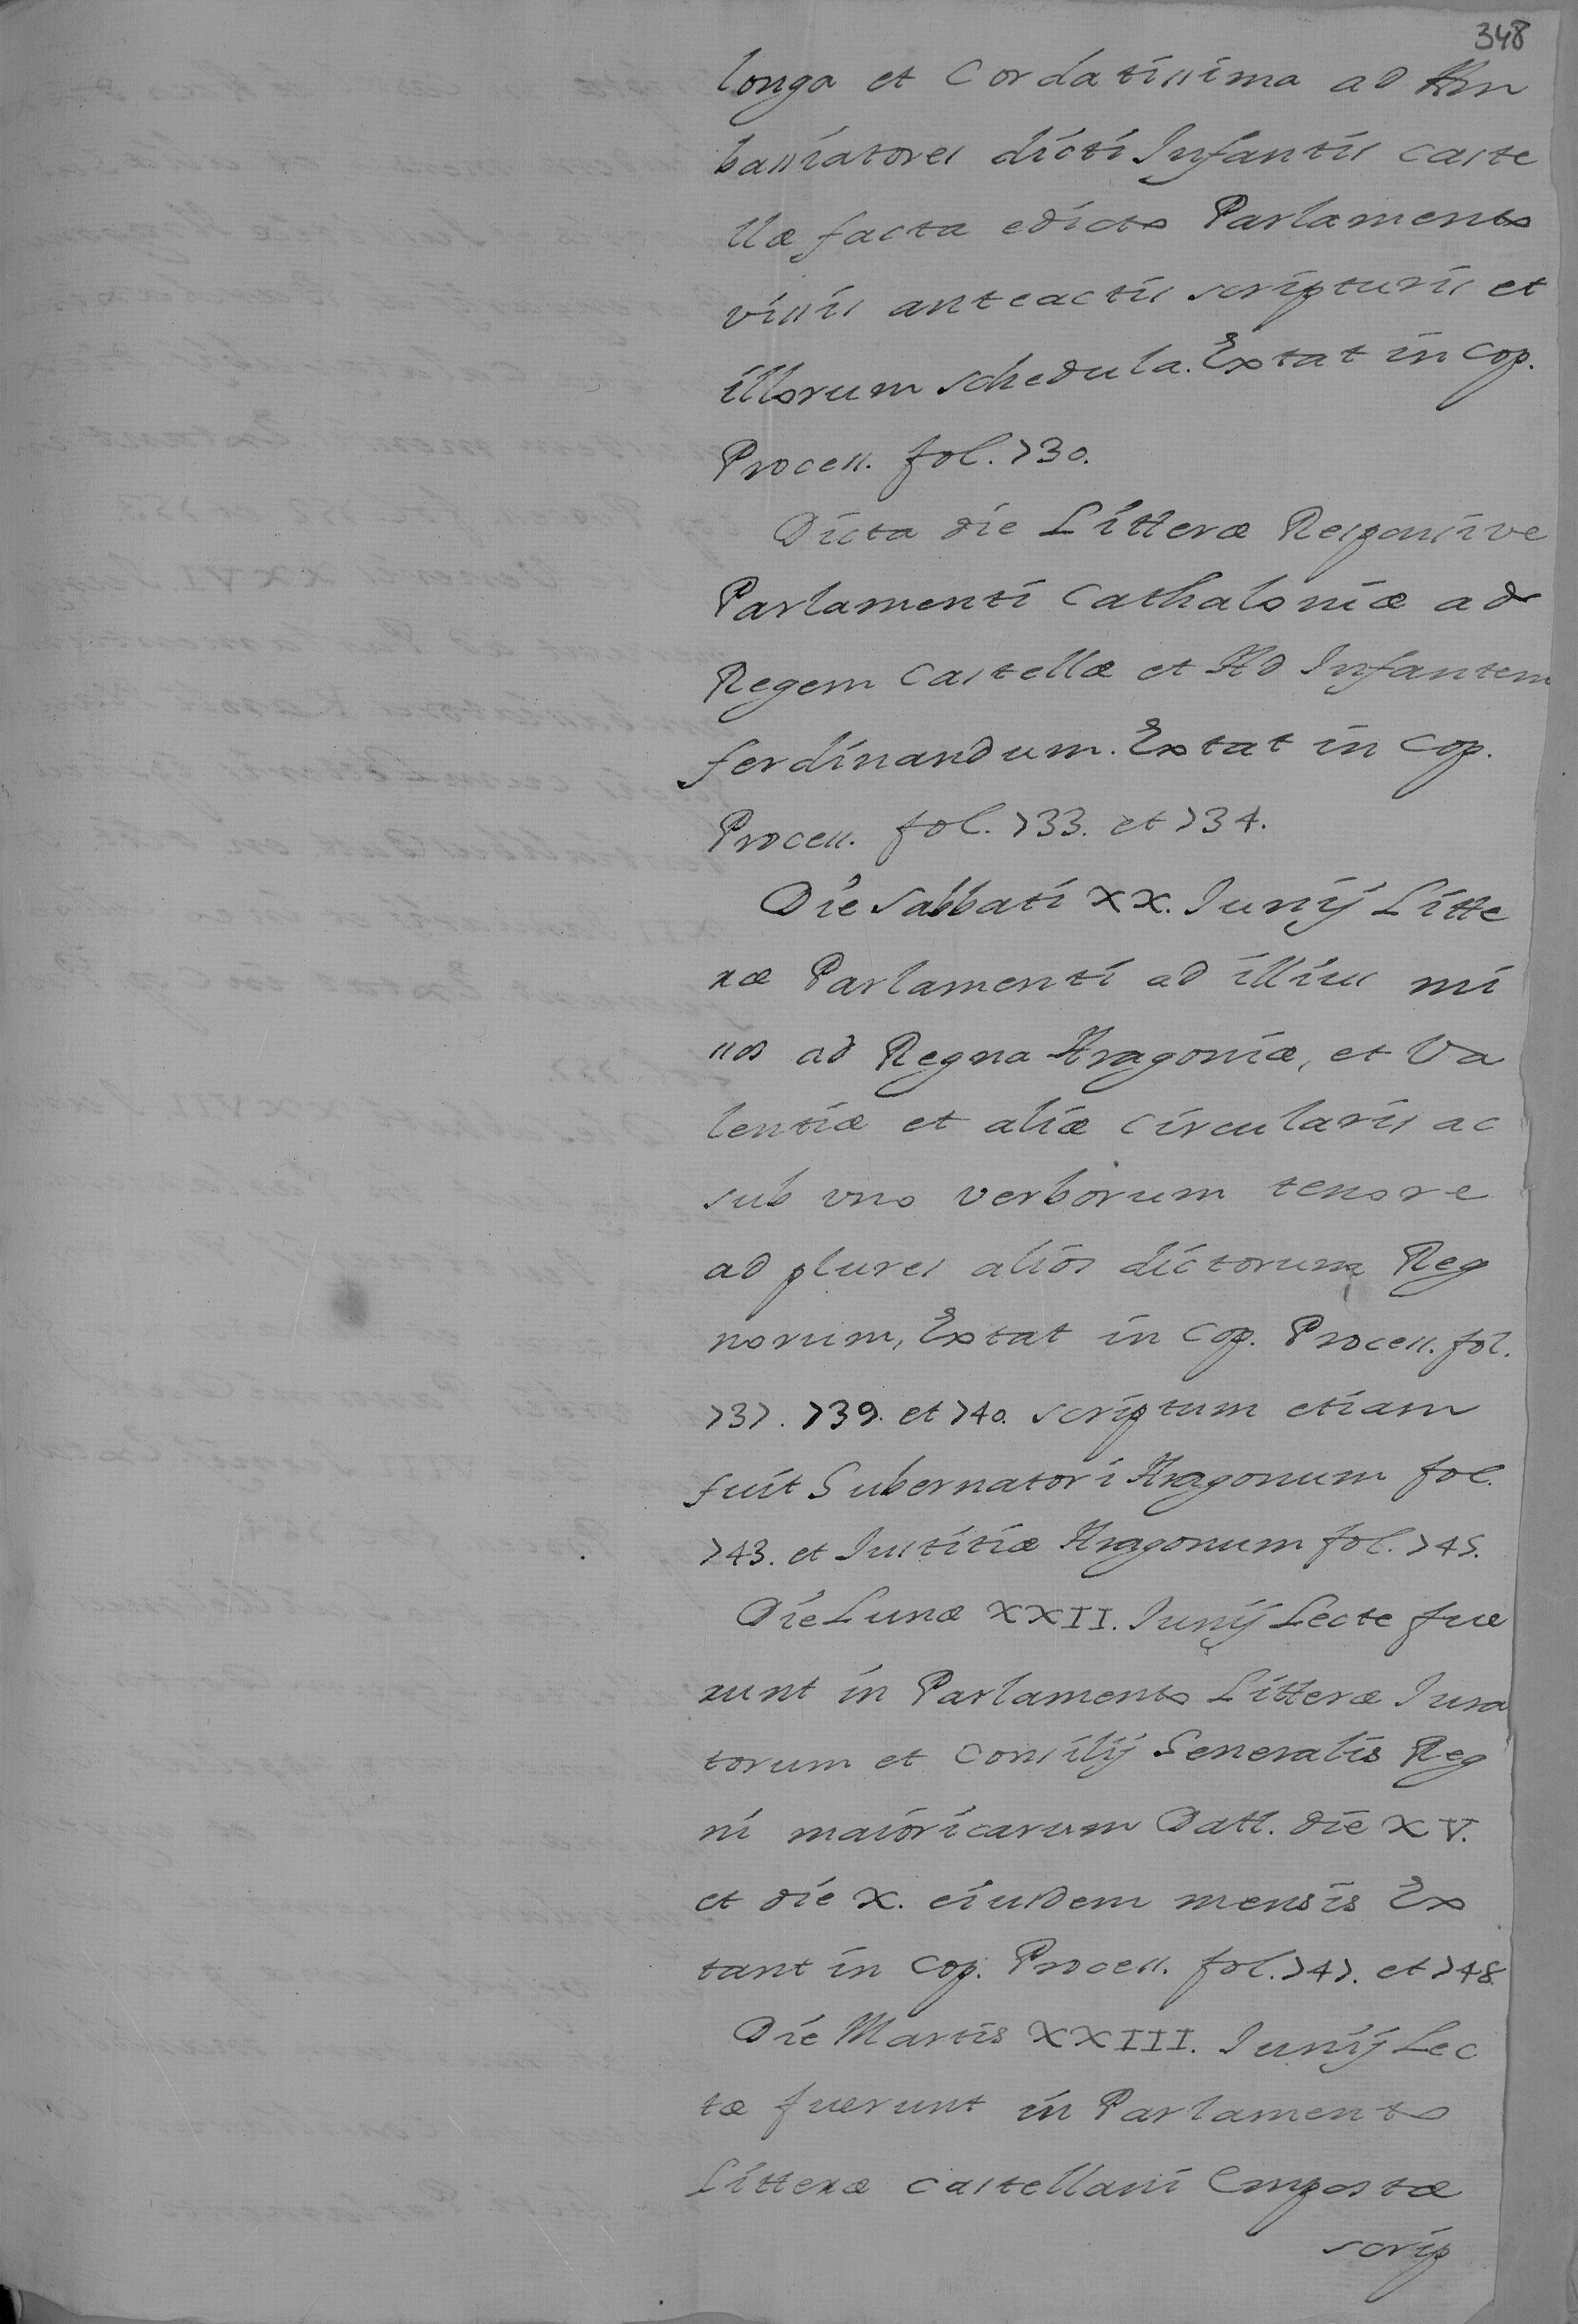 348
longa et Cordatissima ad Am
bassiatores dicti Infantis caste
llæ facta edicto Parlamento
vissis anteactis scripturis et
illorum schedula. Extat in Cop.
Process. fol. 730.
Dicta die Litteræ Responsive
Parlamenti Cathaloniæ ad
Regem Castellæ et Ad Infantem
ferdinandum. Extat in Cop.
Process. fol. 733. et 734.
Die Sabbati XX. Junij Litte
ræ Parlamenti ad illius mi
ssos ad Regna Aragoniæ, et Va
lentiæ et aliæ circularis ac
sub vno verborum tenore
ad plures alios dictorum Reg
norum, Extat in Cop. Process. fol.
737. 739. et 740. scriptum etiam
fuit Gubernatori Aragonum fol.
743. et Justitiæ Aragonum fol. 745.
Die Lunæ XXII. Junij Lecte fue
runt in Parlamento Litteræ Jura
torum et Consilij Generalis Reg
ni maioricarum Datt. die XV.
et die X. eiusdem mensis Ex
tant in Cop. Process. fol. 747. et 748
Die Martis XXIII. Junij Lec
tæ fuerunt in Parlamento
Litteræ Castellani Empostæ
scrip